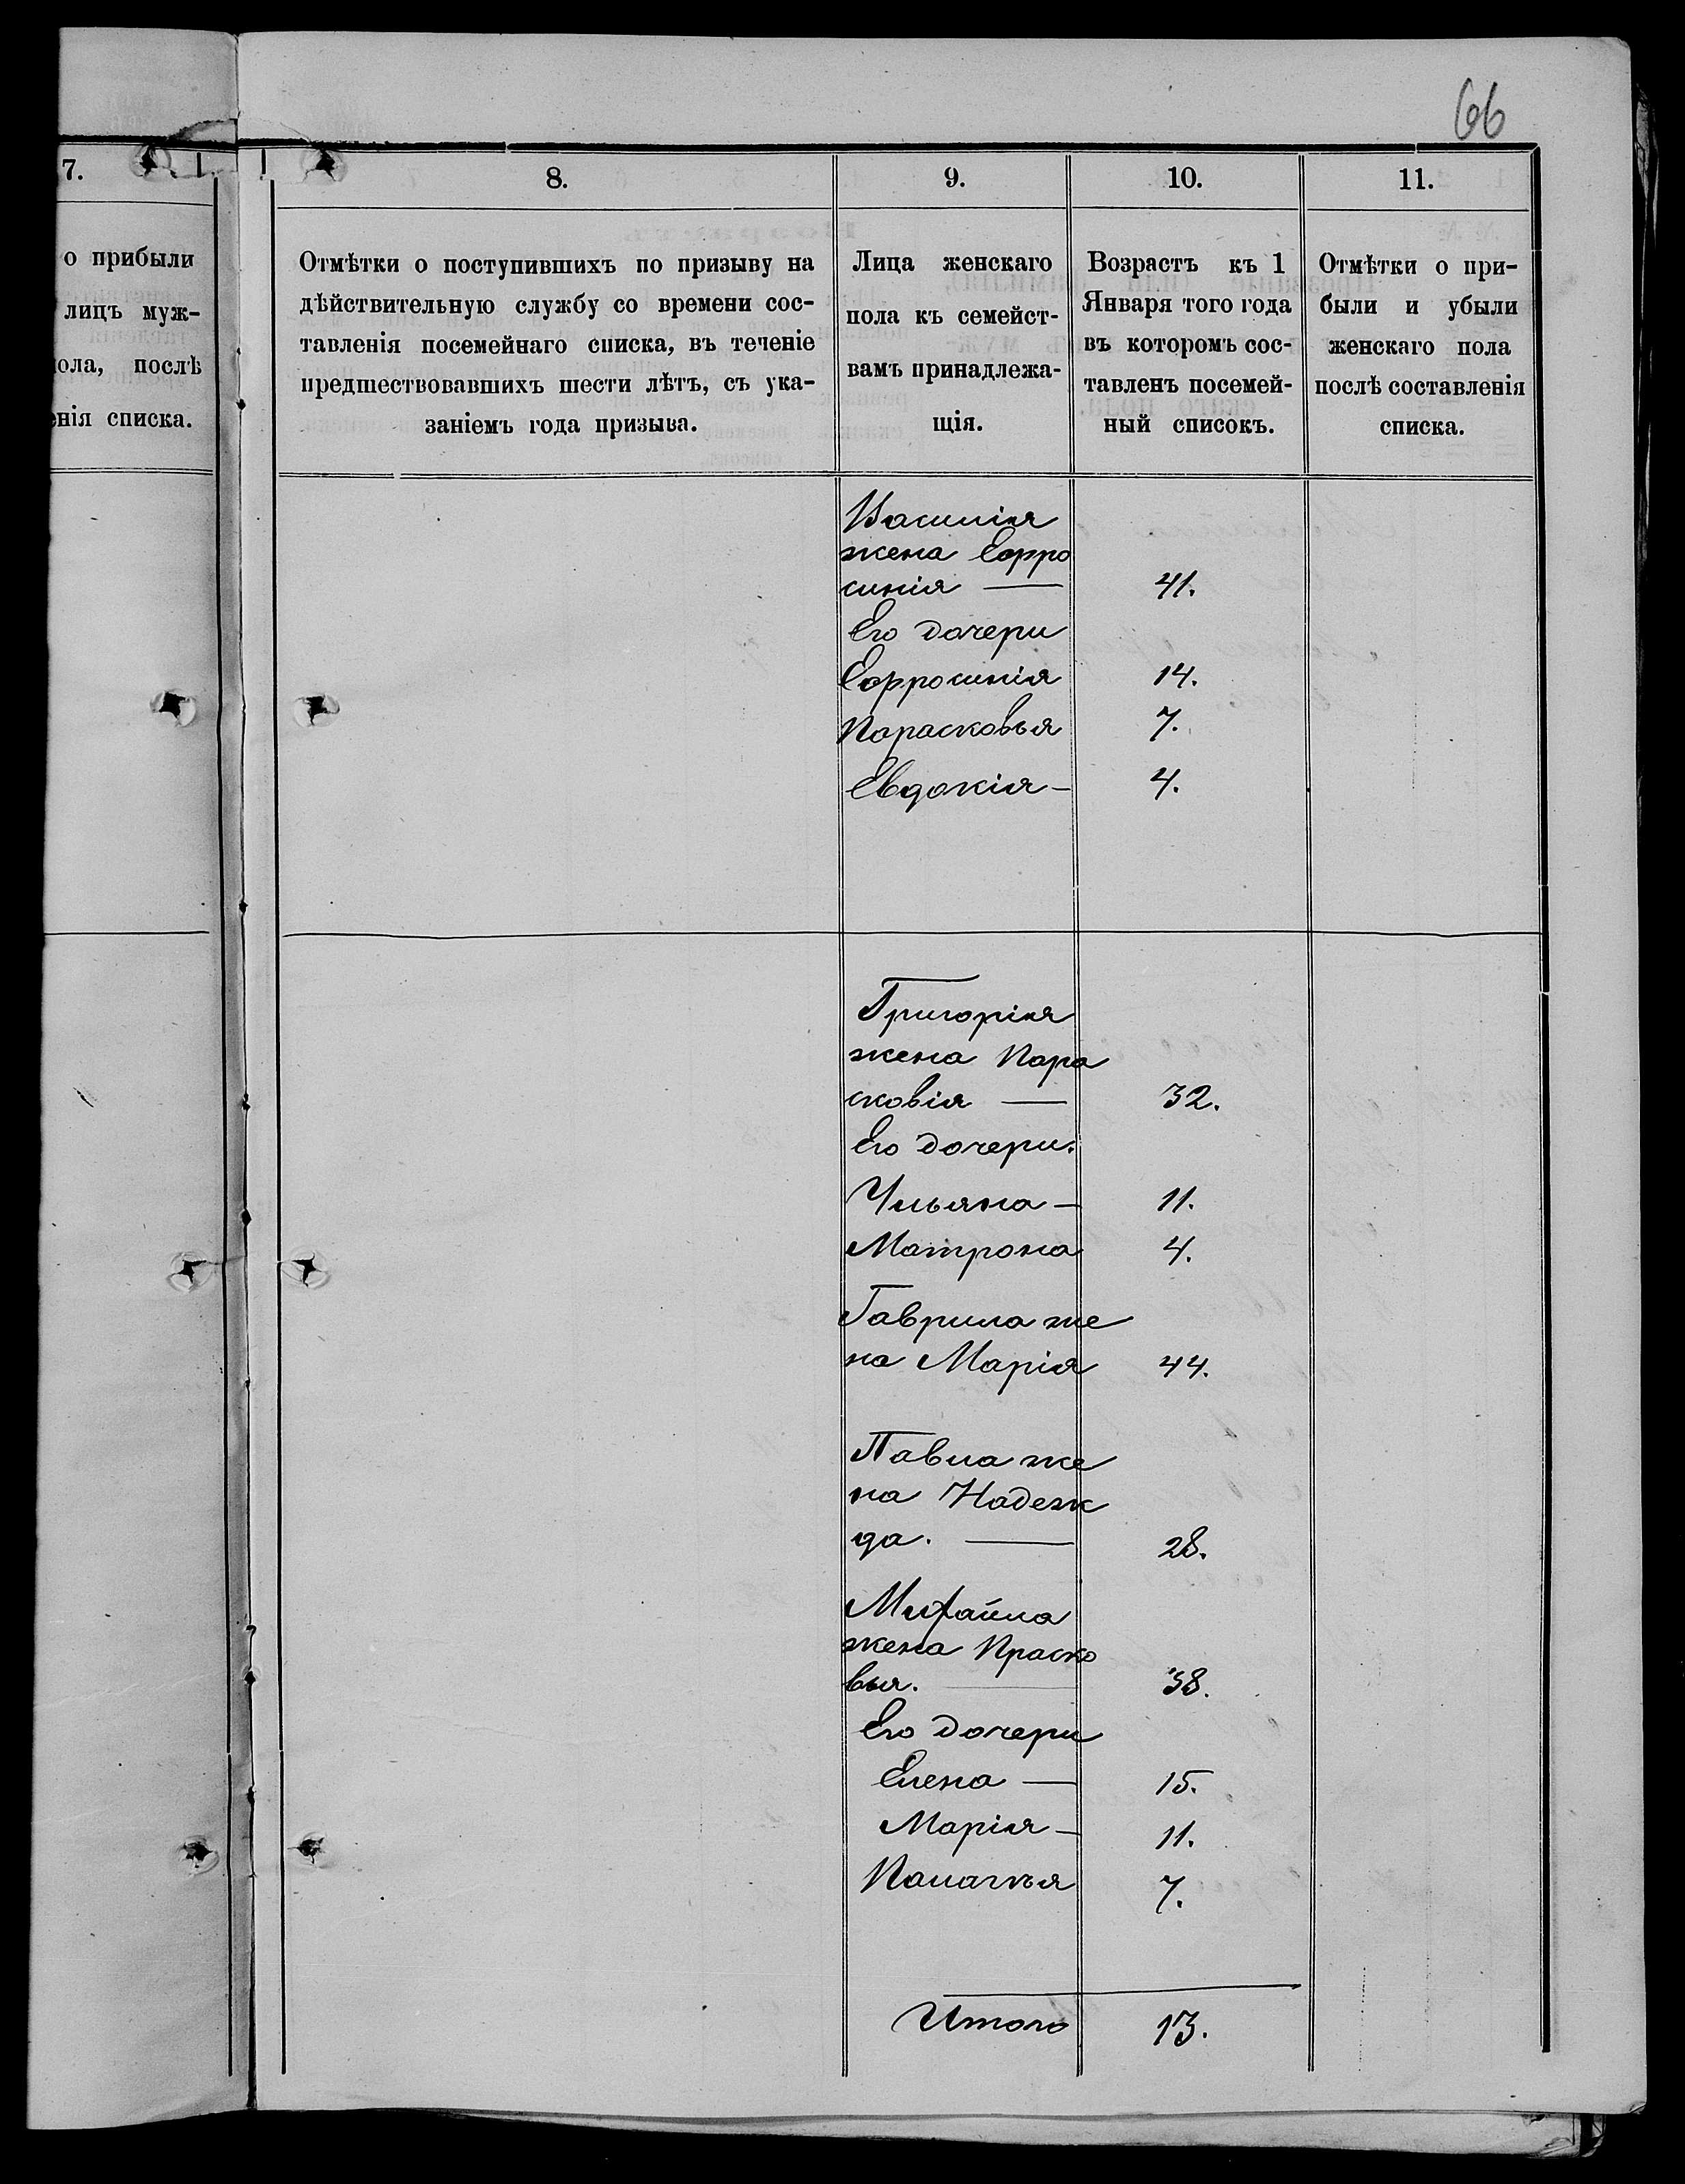 66
7.
8.
9.
10.
11.
о прибыли
лицъ муж-
пола, послѣ
енія списка.
Отмѣтки о поступившихъ по призыву на
дѣйствительную службу со времени сос-
тавленія посемейнаго списка, въ теченіе
предшествовавшихъ шести лѣтъ, съ ука-
заніемъ года призыва.
Лица женскаго
пола къ семейст-
вамъ принадлежа-
щія.
Возрастъ къ 1
Января того года
въ которомъ сос-
тавленъ посемей-
ный списокъ.
Отмѣтки о при-
были и убыли
женскаго пола
послѣ составленія
списка.
Василія
жена Ефро
синія — 41.
Его дочери
Ефросинія 14.
Парасковья 7.
Евдокія — 4.
Григорія
жена Пара
сковія — 32.
Его дочери.
Ульяна — 11.
Матрона 4.
Гаврила же
на Марія 44.
Павла же
на Надеж
да. — 28.
Михайла
жена Праско
вья. — 38.
Его дочери
Елена — 15.
Марія — 11.
Палагья 7.
Итого 13.